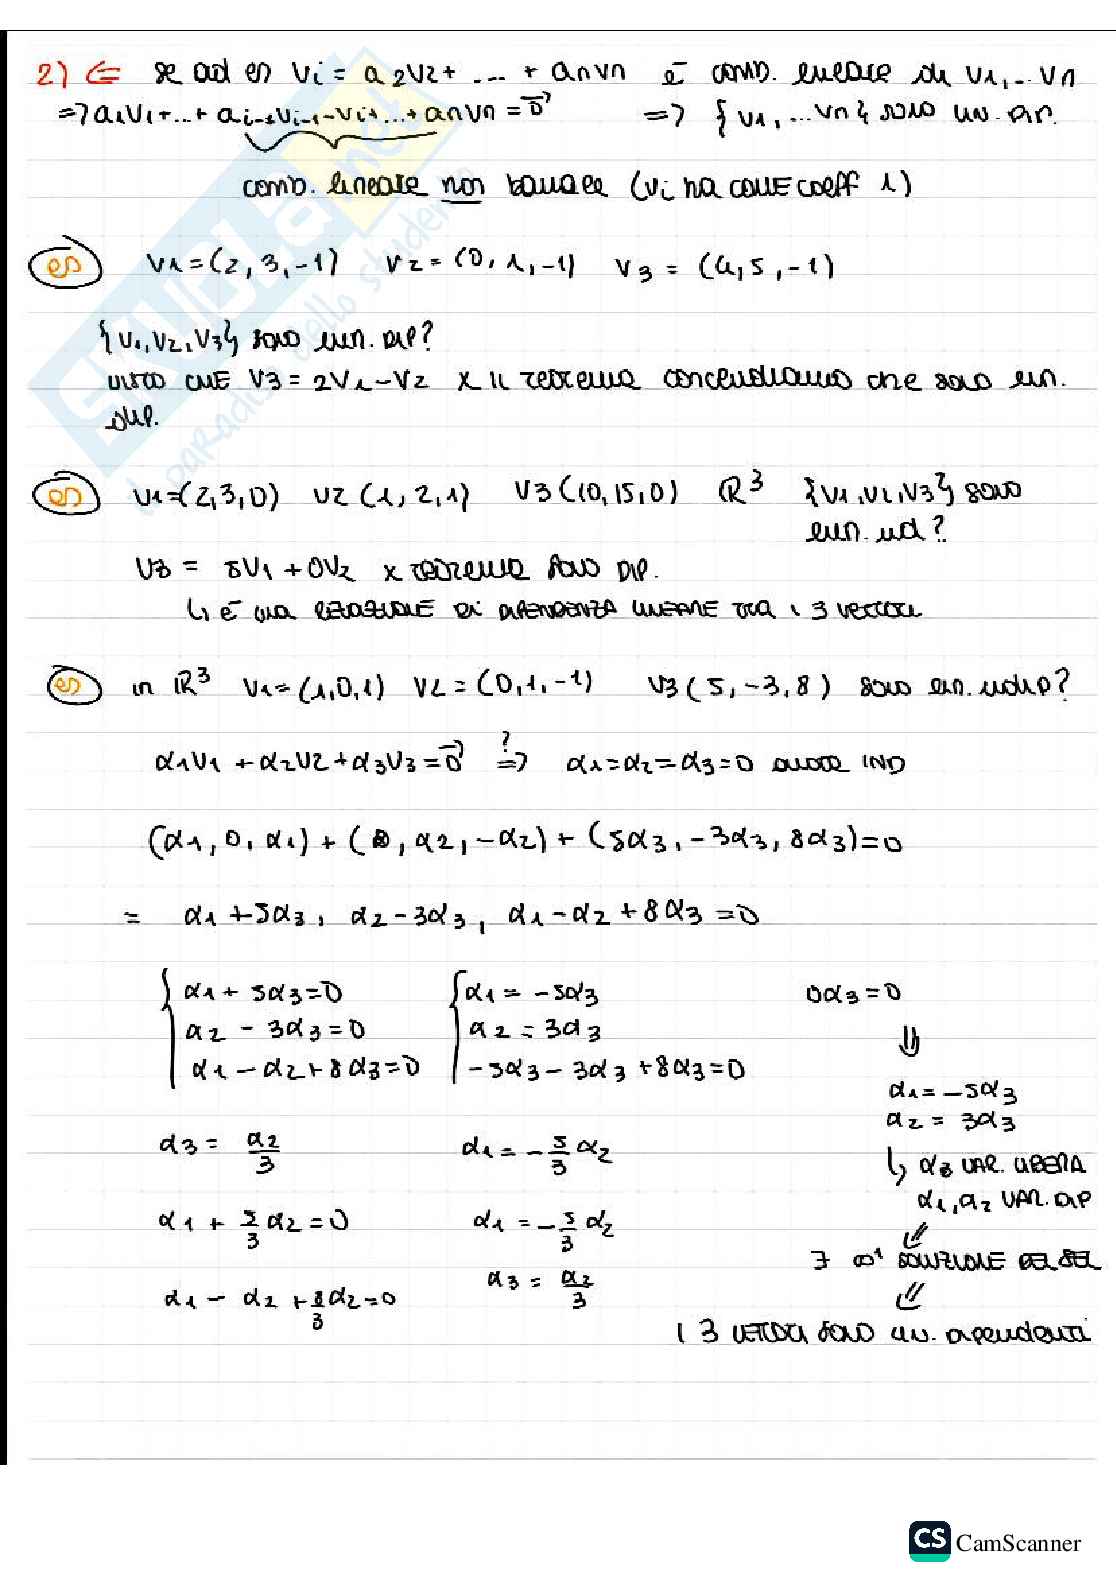 2) ⇐ se ad es vi = a2v2 + ... + anvn è comb. lineare di v1,.. vn
=> a1v1+...+ ai-1vi-1-vi+...+anvn = 0⃗ => {v1, ... vn} sono lin. dip.
comb. lineare non banale (vi ha come coeff 1)
es v1=(2,3,-1) v2=(0,1,-1) v3=(4,5,-1)
{v1,v2,v3} sono lin. dip?
visto che v3=2v1-v2 x il teorema concludiamo che sono lin.
dip.
es v1=(2,3,0) v2(1,2,1) v3(10,15,0) ℝ³ {v1,v2,v3} sono
lin. ind?
v3 = 5v1+0v2 x teorema sono dip.
↳ è una relazione di dipendenza lineare tra i 3 vettori
es in ℝ³ v1=(1,0,1) v2=(0,1,-1) v3(5,-3,8) sono lin. indip?
α1v1+α2v2+α3v3=0⃗ ?=> α1=α2=α3=0 allora IND
(α1,0,α1)+(0,α2,-α2)+(5α3,-3α3,8α3)=0
= α1+5α3, α2-3α3, α1-α2+8α3=0
{α1+5α3=0 {α1=-5α3 0α3=0
α2-3α3=0 α2=3α3 ⇓
α1-α2+8α3=0 -5α3-3α3+8α3=0
α1=-5α3
α2=3α3
α3=α2/3 α1=-5/3α2
↳ α3 VAR. LIBERA
α1,α2 VAR. DIP
α1+5/3α2=0 α1=-5/3α2
⇙
∃ ∞¹ SOLUZIONE DEL SEL
α1-α2+8/3α2=0 α3=α2/3
⇙
i 3 vettori sono lin. dipendenti
CS CamScanner
SKUOLA.net
il paradiso dello studente